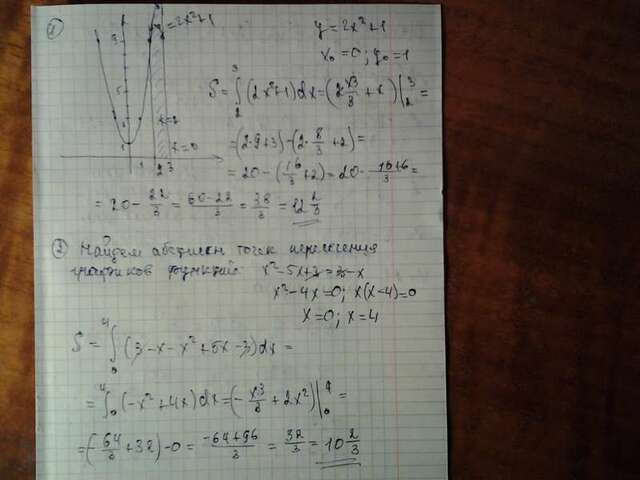 ①
y=2x²+1
y=2x²+1
x₀=0; y₀=1
S=∫₂³(2x²+1)dx=(2x³/3+x)|₂³=
=(2·9+3)-(2·8/3+2)=
=20-(16/3+2)=20-(16+6)/3=
=20-22/3=(60-22)/3=38/3=12 2/3
② Найдем абсциссы точек пересечения
графиков функций x²-5x+3=3-x
x²-4x=0; x(x-4)=0
x=0; x=4
S=∫₀⁴(3-x-x²+5x-3)dx=
=∫₀⁴(-x²+4x)dx=(-x³/3+2x²)|₀⁴=
=(-64/3+32)-0=(-64+96)/3=32/3=10 2/3